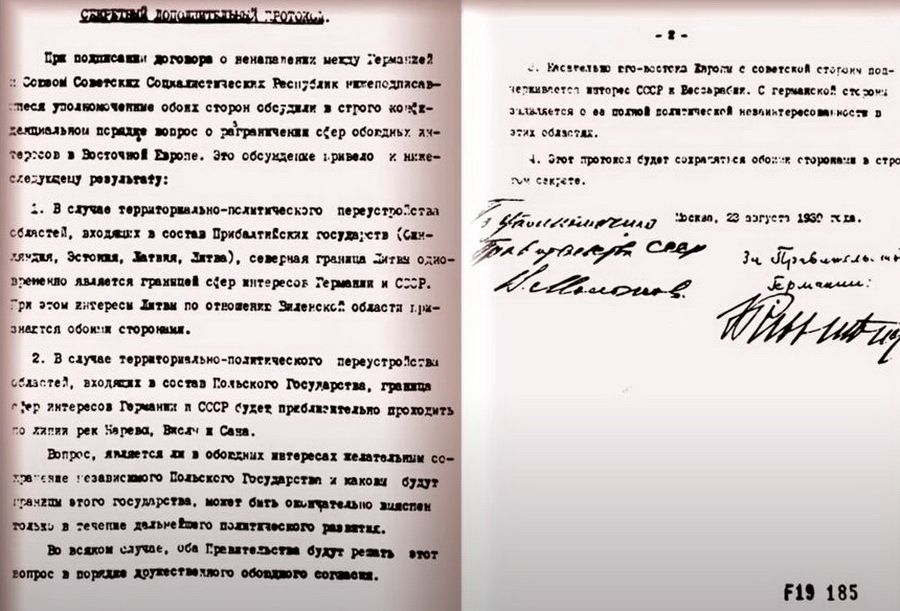 СЕКРЕТНЫЙ ДОПОЛНИТЕЛЬНЫЙ ПРОТОКОЛ.
При подписании договора о ненападении между Германией
и Союзом Советских Социалистических Республик нижеподписав-
шиеся уполномоченные обоих сторон обсудили в строго конфи-
денциальном порядке вопрос о разграничении сфер обоюдных ин-
тересов в Восточной Европе. Это обсуждение привело к ниже-
следующему результату:
1. В случае территориально-политического переустройства
областей, входящих в состав Прибалтийских государств (Фин-
ляндия, Эстония, Латвия, Литва), северная граница Литвы одно-
временно является границей сфер интересов Германии и СССР.
При этом интересы Литвы по отношению Виленской области приз-
наются обоими сторонами.
2. В случае территориально-политического переустройства
областей, входящих в состав Польского Государства, граница
сфер интересов Германии и СССР будет приблизительно проходить
по линии рек Нарева, Вислы и Сана.
Вопрос, является ли в обоюдных интересах желательным со-
хранение независимого Польского Государства и каковы будут
границы этого государства, может быть окончательно выяснен
только в течение дальнейшего политического развития.
Во всяком случае, оба Правительства будут решать этот
вопрос в порядке дружественного обоюдного согласия.
- 2 -
3. Касательно юго-востока Европы с советской стороны под-
черкивается интерес СССР к Бессарабии. С германской стороны
заявляется о ее полной политической незаинтересованности в
этих областях.
4. Этот протокол будет сохраняться обоими сторонами в стро-
гом секрете.
Москва, 23 августа 1939 года.
По уполномочию
Правительства СССР
В. Молотов
За Правительство
Германии:
F19 185